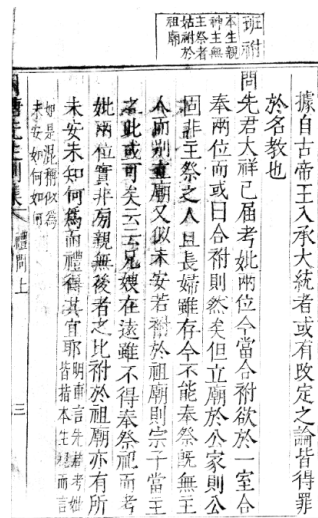 班祔
本生親
神主無
主祭者
姑祔於
祖廟
據自古帝王入承大統者或有攺定之論皆得罪
於名教也
問先君大祥已届考妣兩位今當合祔欲於一室合
奉兩位而或曰合祔則然矣但立廟於公家則公
固非主祭之人且長婦雖存今不能奉祭旣無主
人而別立廟又似未安若祔於祖廟則宗子當主
之此或可矣云云兄嫂在遠雖不得奉祭祀而考
妣兩位實非旁親無後者之比祔於祖廟亦有所
未安未知何爲而禮得其宜耶
言先君考妣
皆指本生親而言
如是混稱似爲
未安如何如何
先生別集
禮問上
三